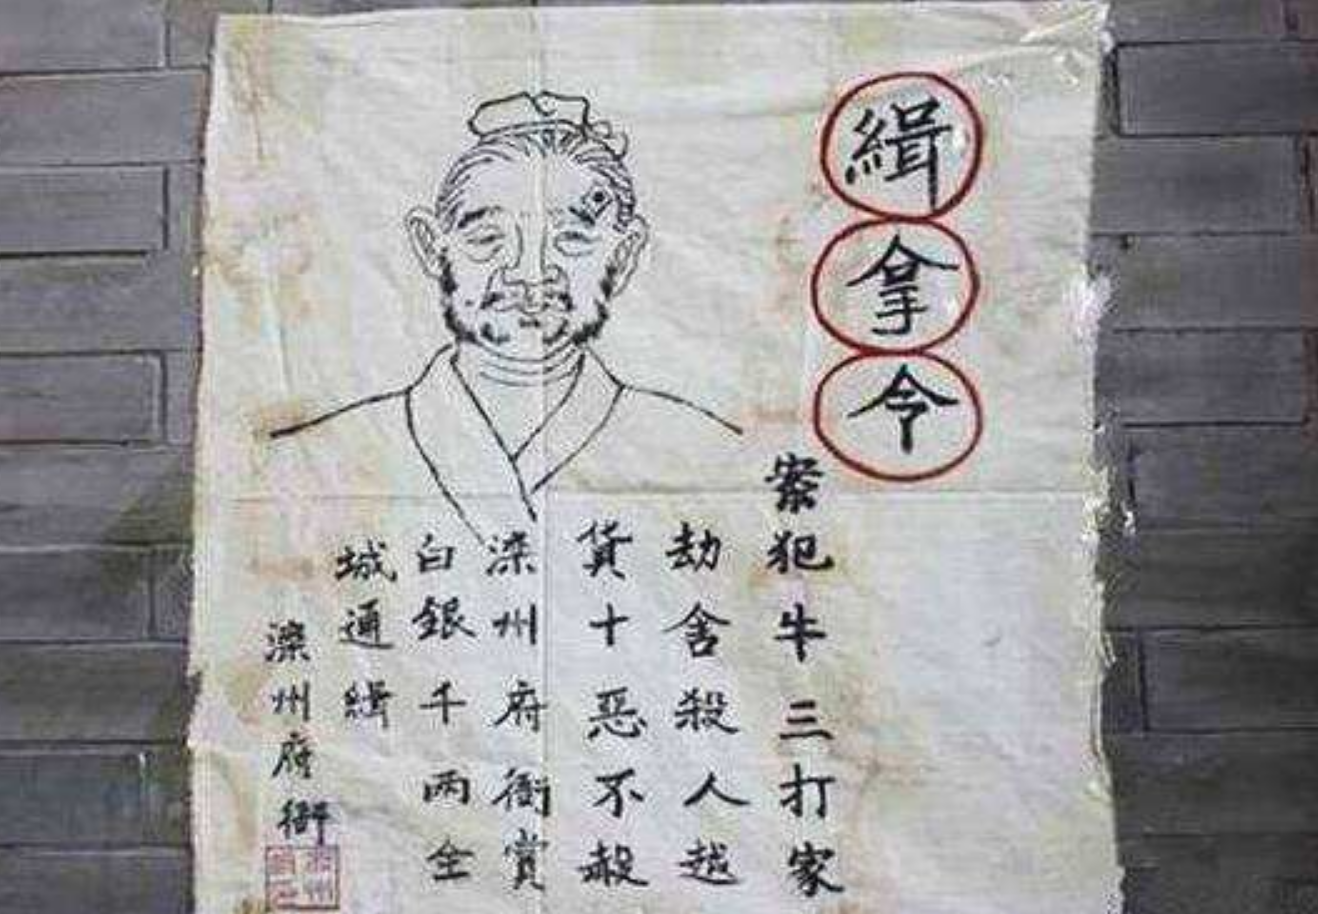 緝拿令
案犯牛三打家
劫舍殺人越
貨十惡不殺
滦州府衙賞
白銀千两全
城通緝
滦州府衙